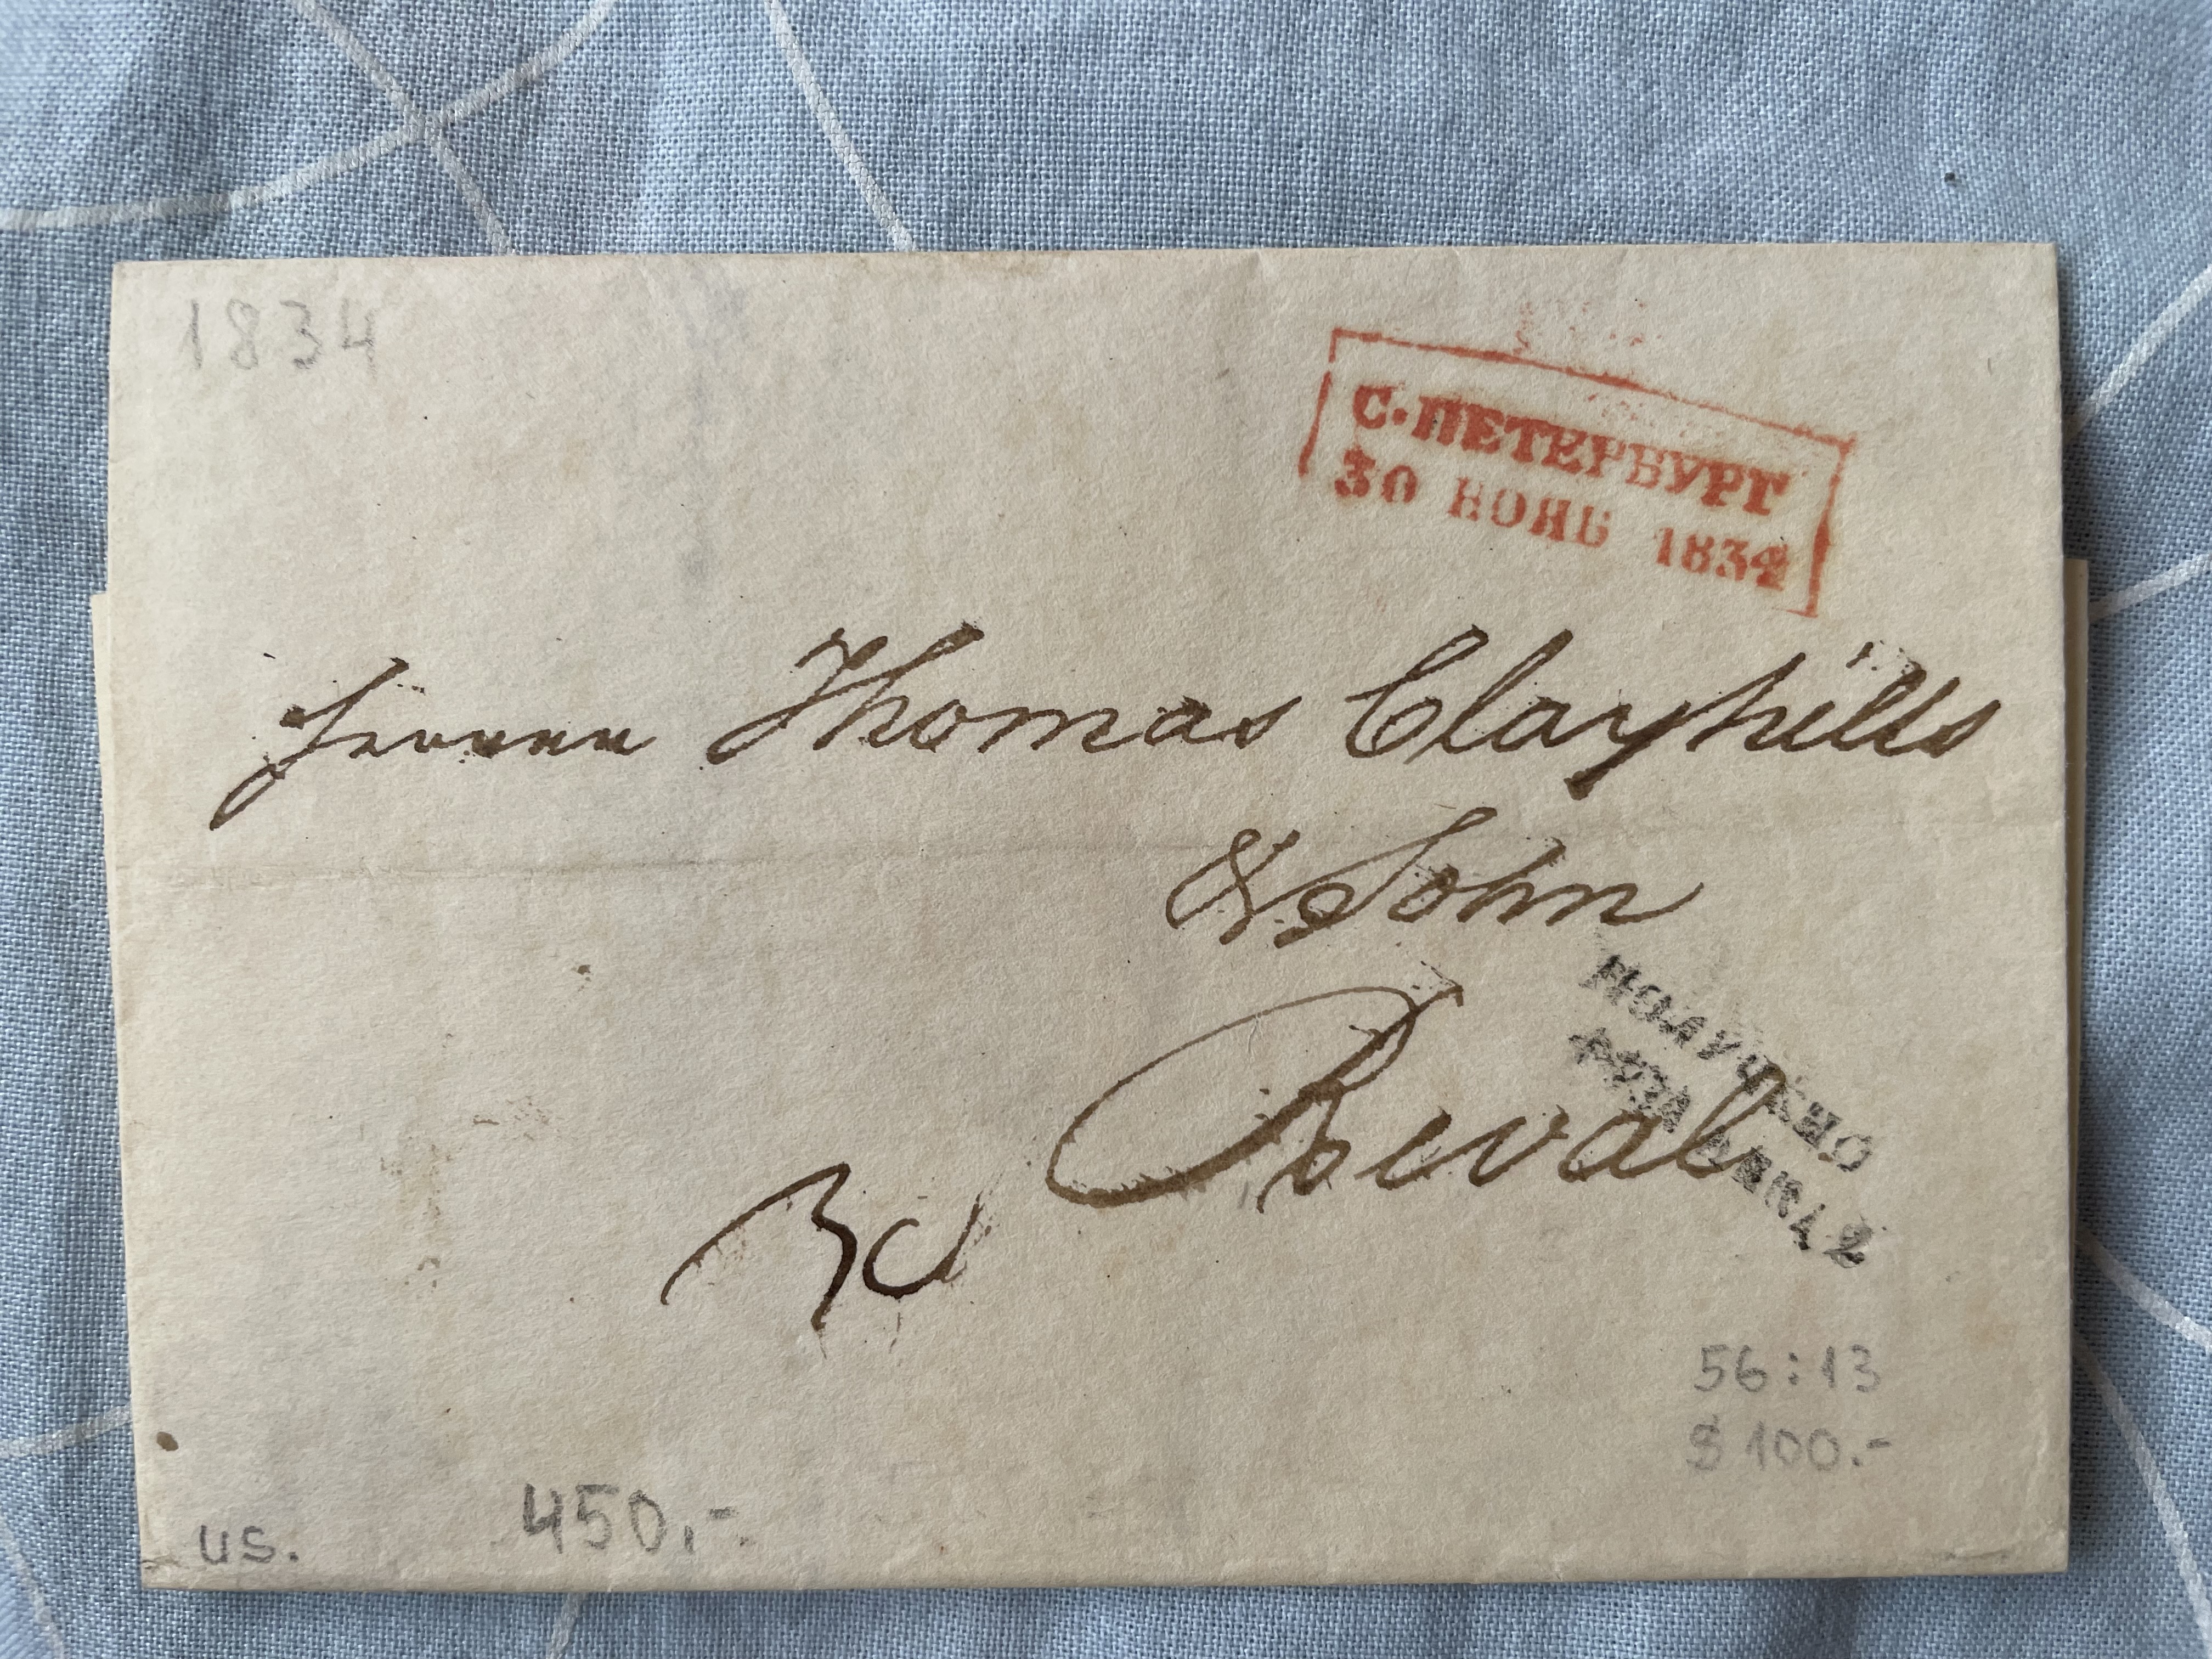 1834
С·ПЕТЕРБУРГ
30 НОЯБ 1834
Herren Thomas Clayhills
& Sohn
Reval
ПОЛУЧЕНО
56:13
$ 100.-
450.-
us.